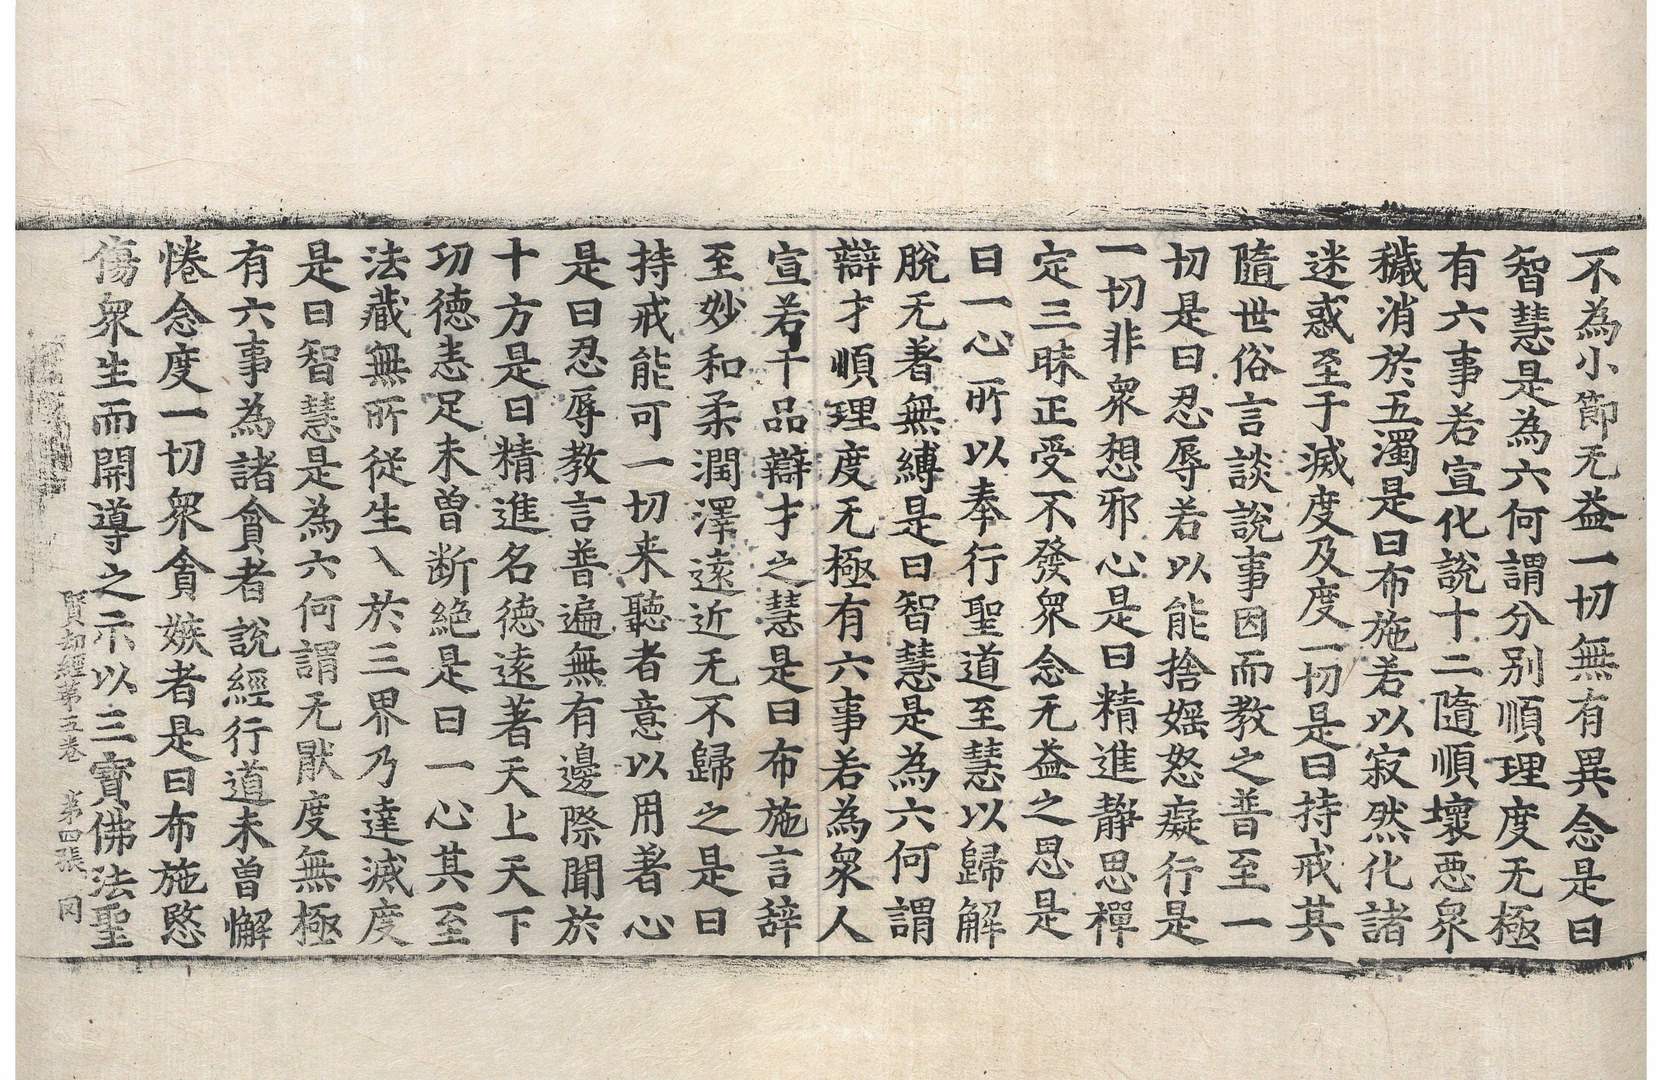 不為小節无益一切無有異念是曰
智慧是為六何謂分别順理度无極
有六事若宣化說十二隨順壞惡衆
穢消於五濁是曰布施若以寂然化諸
迷惑至于滅度及度一切是曰持戒其
隨世俗言談說事因而教之普至一
切是曰忍辱若以能捨婬怒癡行是
一切非衆想邪心是曰精進靜思禪
定三昧正受不發衆念无益之思是
曰一心所以奉行聖道至慧以歸解
脫无著無縛是曰智慧是為六何謂
辯才順理度无極有六事若為衆人
宣若干品辯才之慧是曰布施言辞
至妙和柔潤澤遠近无不歸之是曰
持戒能可一切来聽者意以用著心
是曰忍辱教言普遍無有邊際聞於
十方是曰精進名德遠著天上天下
功德恚足未曾断絶是曰一心其至
法藏無所從生乀於三界乃達滅度
是曰智慧是為六何謂无猒度無極
有六事為諸貪者說經行道未曽懈
惓念度一切衆貪嫉者是曰布施愍
傷衆生而開導之示以三寳佛法聖
賢劫經苐五卷 苐四張 罔